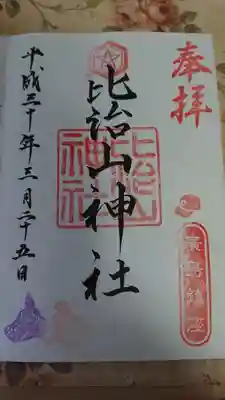 奉拝
比治山神社
比治山
神社
廣島鎮座
平成三十年三月二十五日